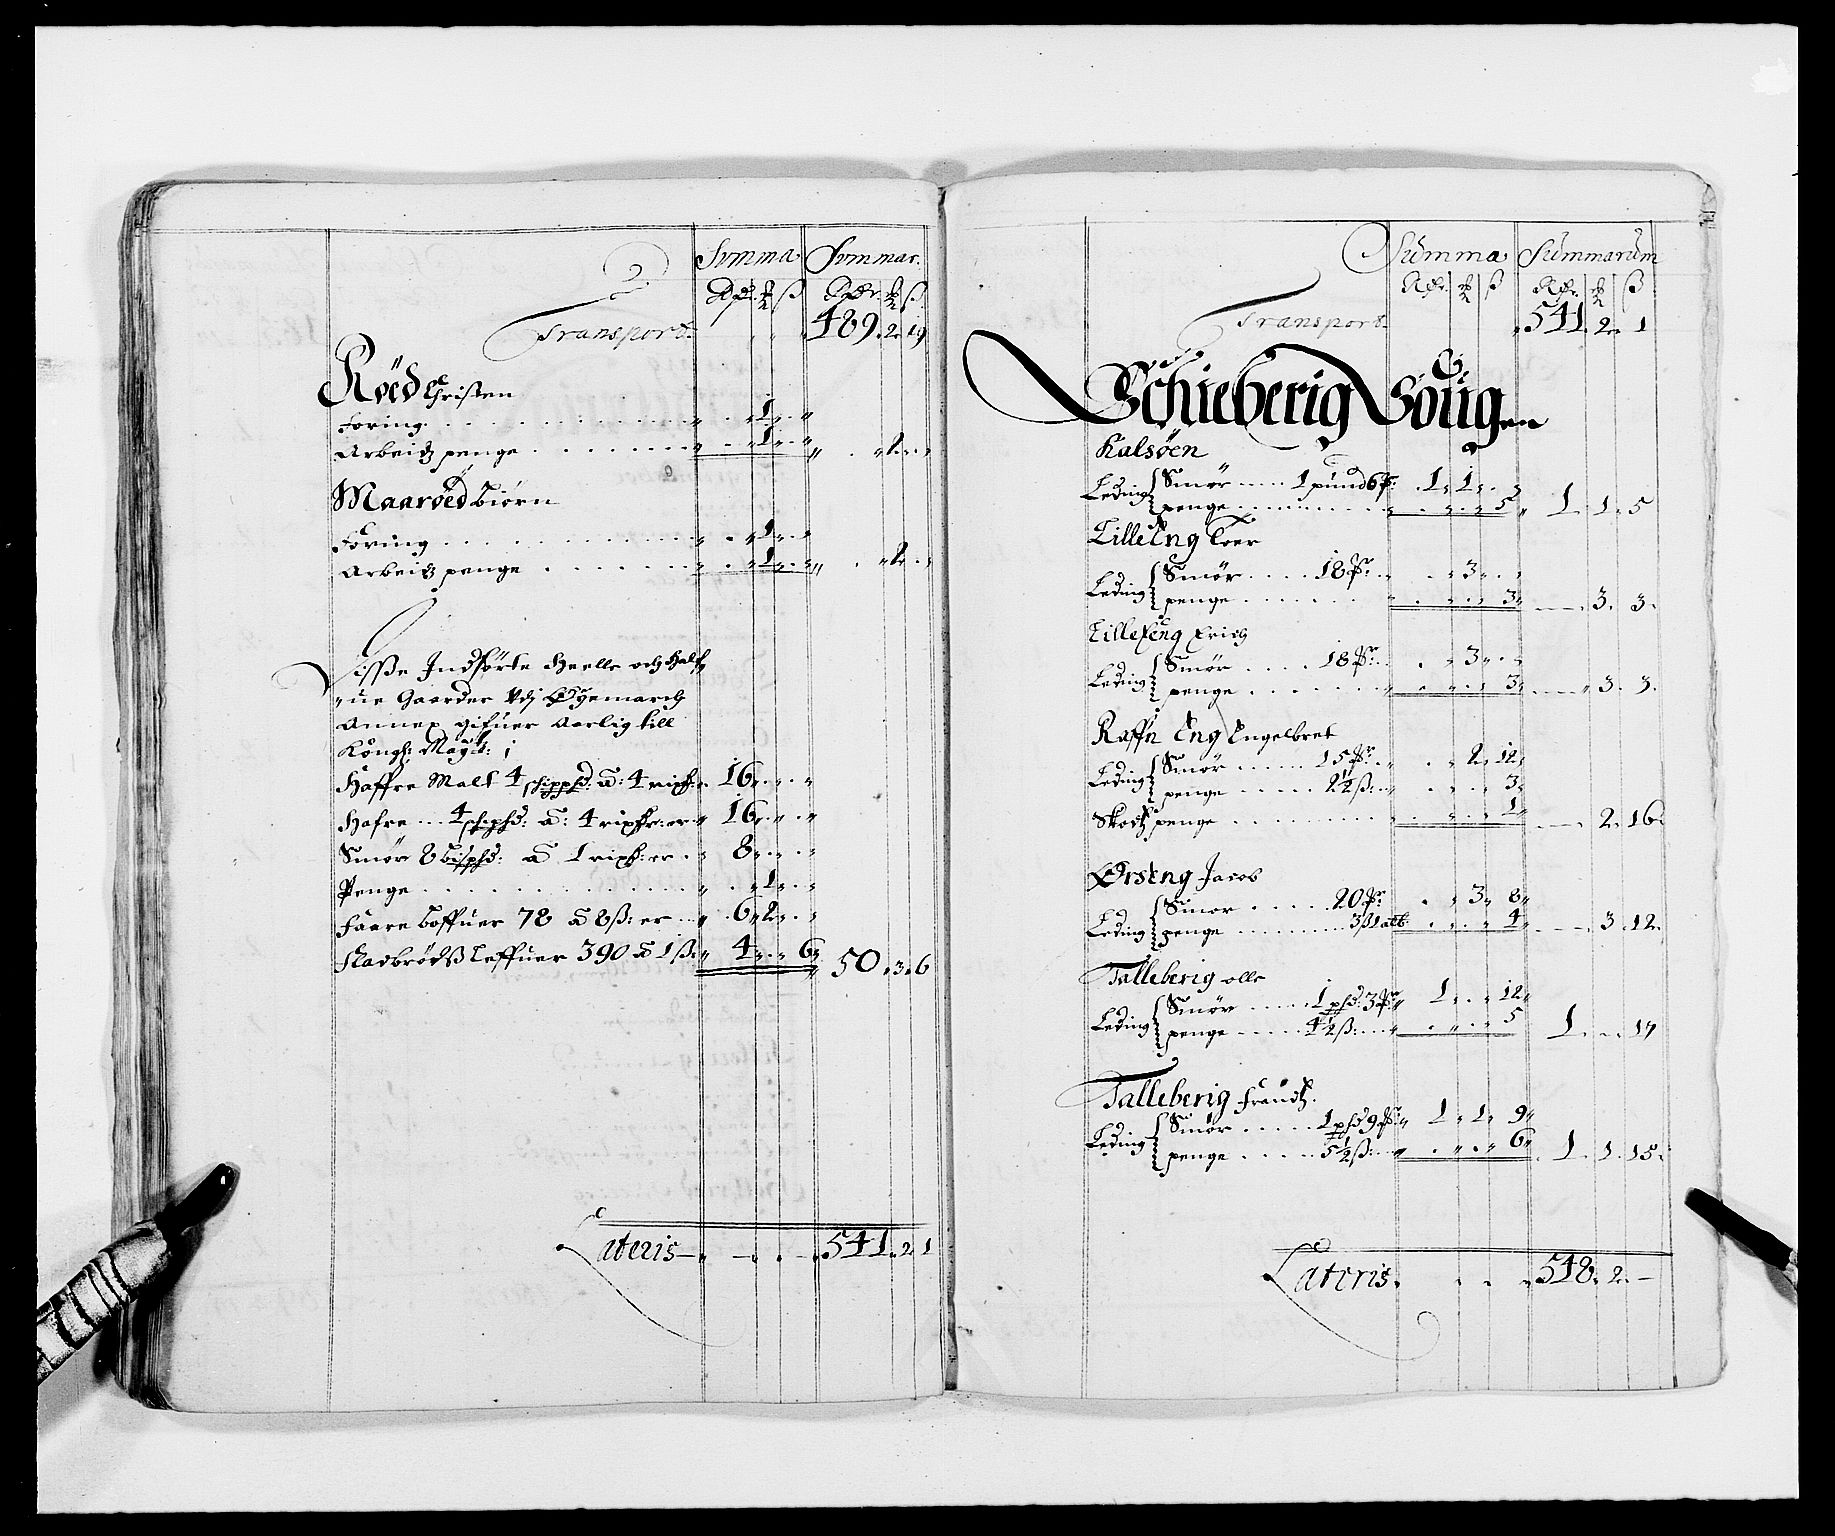 Summa Summar.
Rdr. ß Rdr. ß
Transport 489. 2. 19
Röed Christen
Foring 1
Arbeidz penge 1 2
Maaröed Biörn
Foring 1
Arbeidz penge 1 2
Disse Indförte Heelle och Half
ue Gaarder Vdj Öyemarch
Annex gifuer Aarlig till
Kongl: Mayst:
Haffre Malt 4 schippd: a: 4 rixdr. 16
Hafre 4 schipd: a: 4 rixdr: er 16
Smör 8 bispd: a 1 rixdr: er 8
Penge 1
Faare Boffuer 78 a 8 ß: er 6 2
Fladbröds Leffuer 390 a 1 ß 4 6 50. 3. 6
Lateris 541. 2. 1
Summa Summarum
Rdr. ß Rdr. ß
Transport 541. 2. 1
Schieberig Sougen
Kalsöen
Leding Smör 1 pund 6 1 1
penge 5 1. 1. 5
Lille Eng Toer
Leding Smör 18 3
penge 3 3. 3.
Lille Eng Erich
Leding Smör 18 3
penge 3 3. 3.
Raffn Eng Engelbret
Leding Smör 15 2 12
penge 2½ ß: 3
Skodz penge 1 2. 16.
Örseng Jacob
Leding Smör 20 3 8
penge 3 ß 1 alb: 4 3. 12.
Talleberig olle
Leding Smör 1 pd: 3 1 12
penge 4½ ß: 5 1. 17
Talleberig Frandz.
Leding Smör 1 pd 9 1 1 9
penge 5½ ß: 6 1. 1. 15.
Lateris 548. 2. —